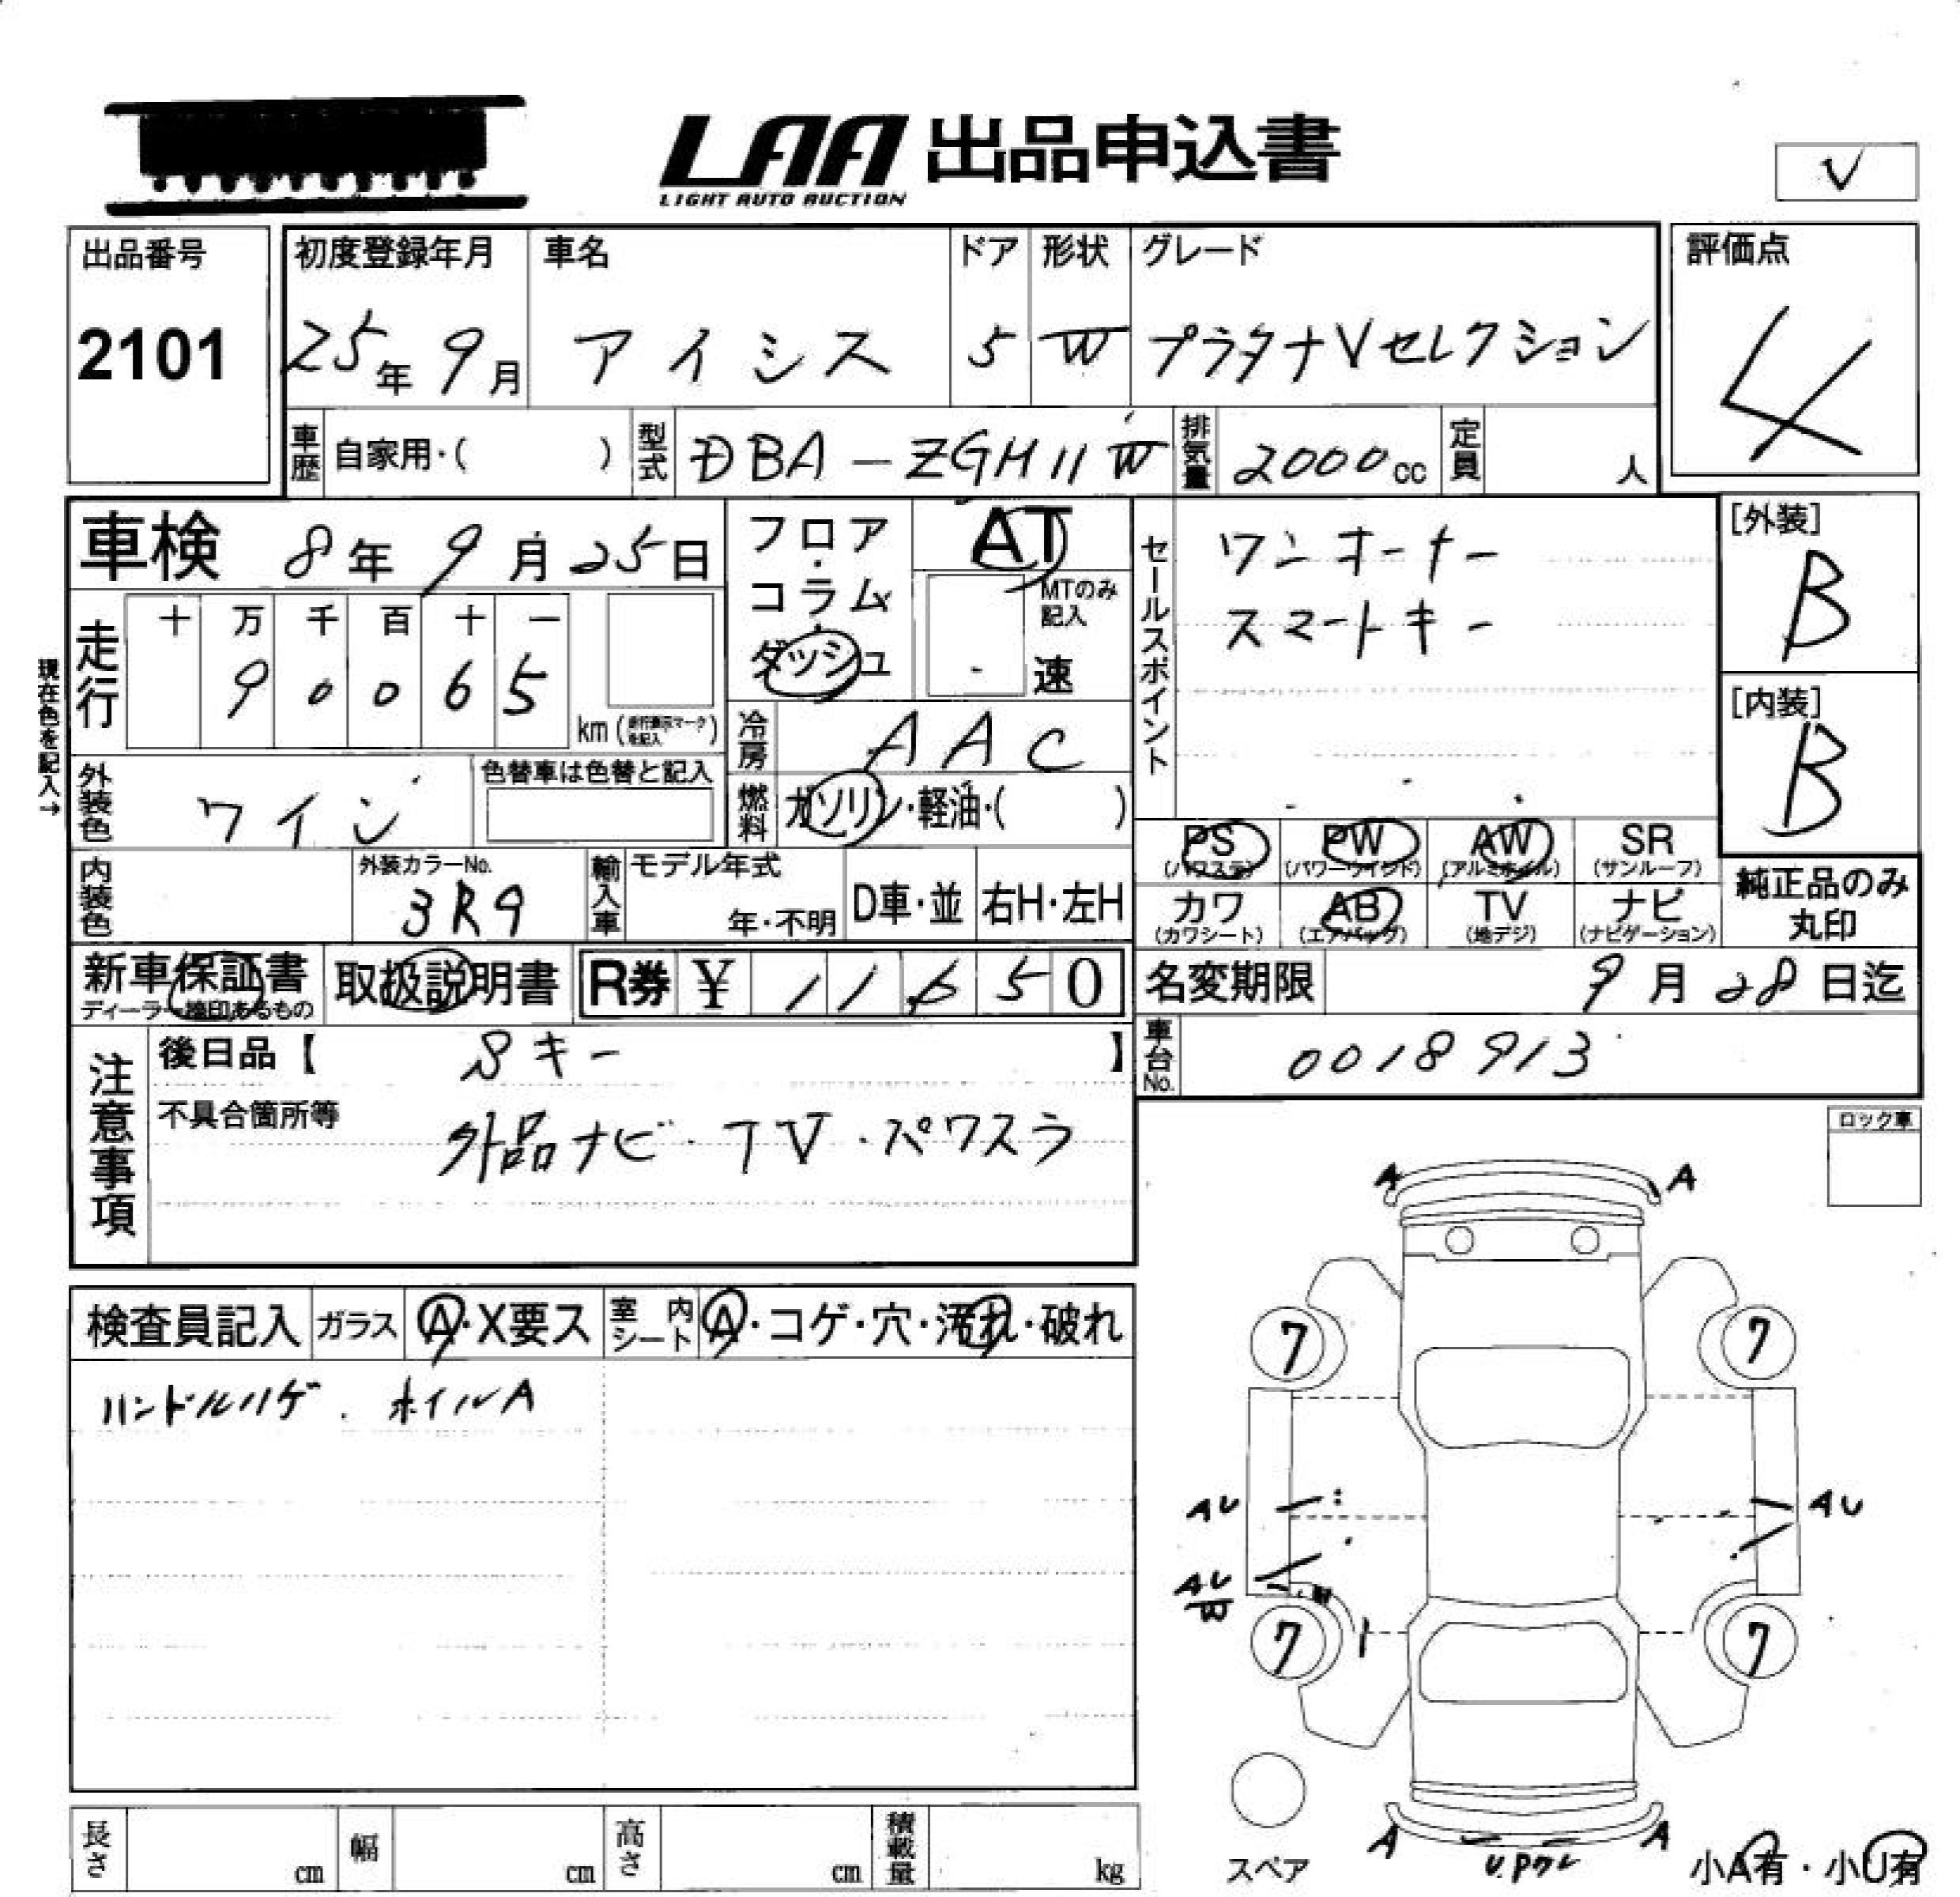 LAA 出品申込書
LIGHT AUTO AUCTION
V
出品番号 初度登録年月 車名 ドア 形状 グレード 評価点
2101 25年 9月 アイシス 5 W プラタナVセレクション 4
車歴 自家用・( ) 型式 DBA-ZGM11W 排気量 2000cc 定員 人
車検 8年 9月 25日 フロア・コラム・ダッシュ AT
MTのみ記入
速
セールスポイント
ワンオーナー
スマートキー
[外装]
B
[内装]
B
現在色を記入→
走行 十 万 千 百 十 一
9 0 0 6 5
km (走行表示マークを記入)
冷房 AAC
外装色 ワイン 色替車は色替と記入
燃料 ガソリン・軽油・( )
PS (パワステ) PW (パワーウインド) AW (アルミホイル) SR (サンルーフ)
カワ (カワシート) AB (エアバッグ) TV (地デジ) ナビ (ナビゲーション)
純正品のみ
丸印
内装色 外装カラーNo. 3R9 輸入車 モデル年式 年・不明 D車・並 右H・左H
新車保証書 取扱説明書 R券 ¥ 11,650
ディーラー捺印あるもの
名変期限 9月 28日迄
車台No. 0018913
注意事項
後日品【 Sキー 】
不具合箇所等
外品ナビ・TV・スペアワスラ
ロック車
検査員記入 ガラス A・X要ス 室内シート A・コゲ・穴・汚れ・破れ
ハンドルハゲ . ホイルA
A A
7 7
AU AU
AU
W
7 7
A A
U.Pワレ
スペア
小A有・小U有
長さ cm 幅 cm 高さ cm 積載量 kg